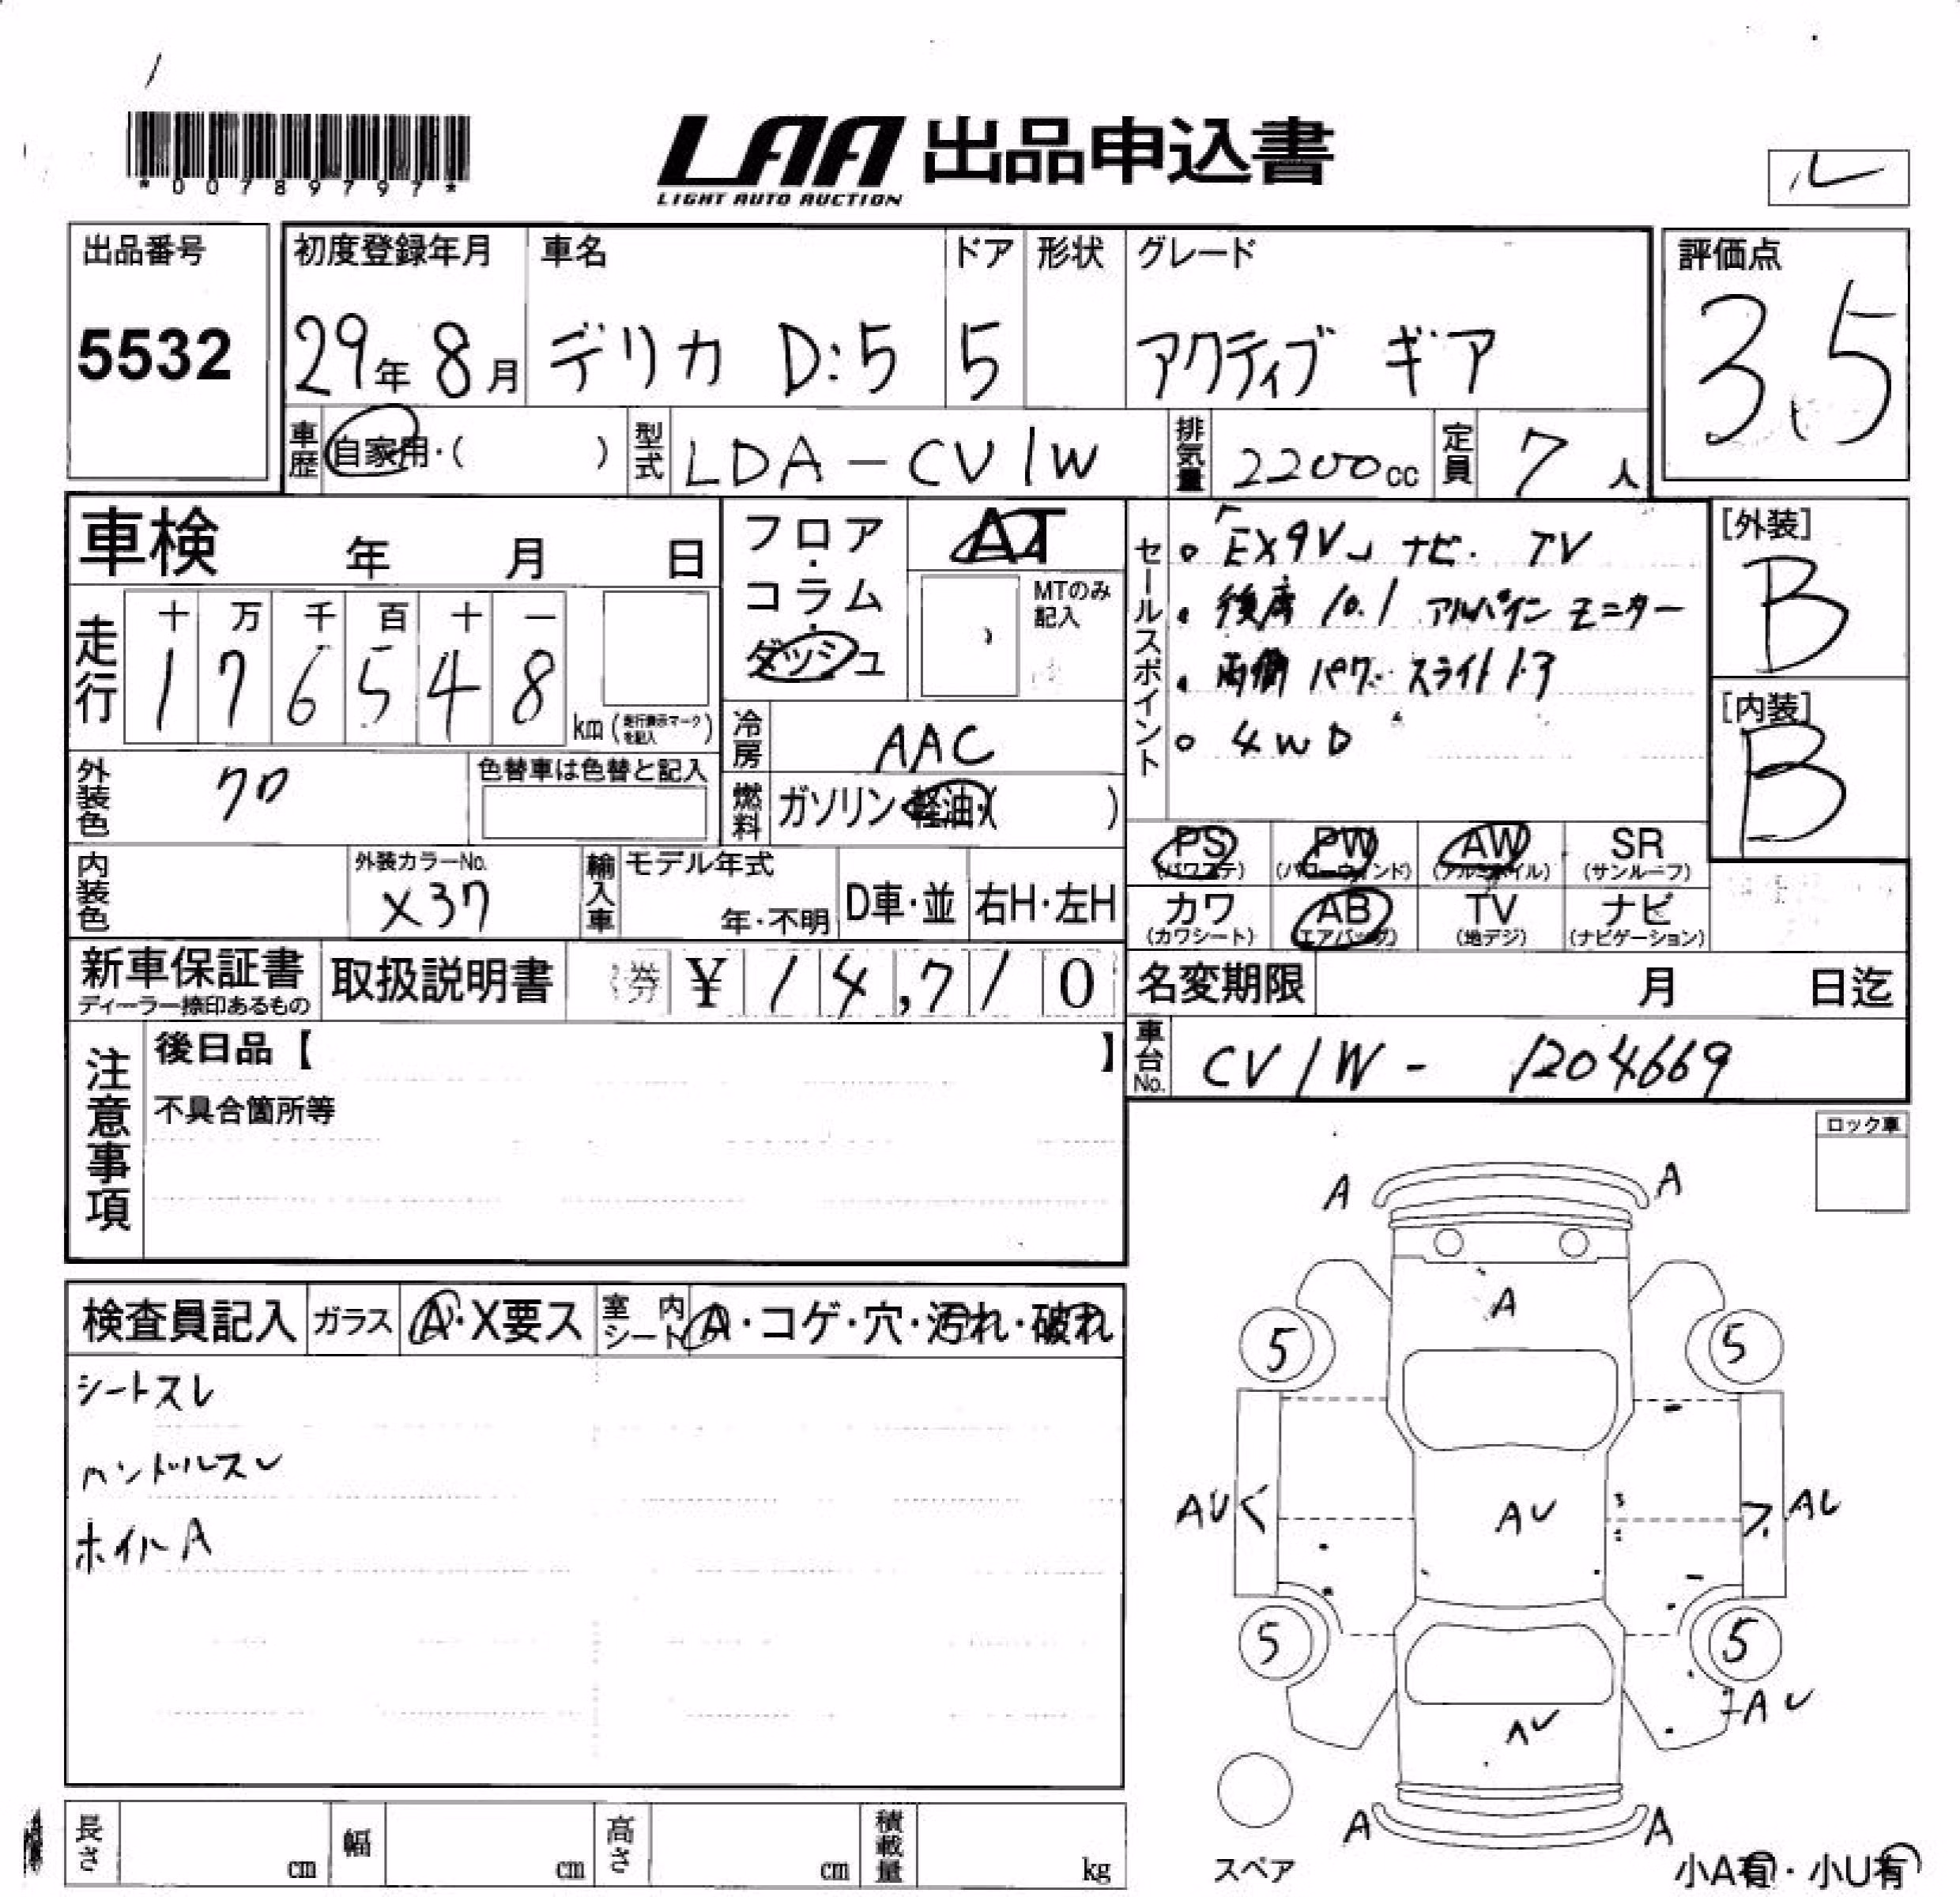 *00789797*
LAA 出品申込書
LIGHT AUTO AUCTION
出品番号
5532
初度登録年月
29年 8月
車名
デリカ D:5
ドア
5
形状
グレード
アクティブ ギア
評価点
3.5
車歴
自家用・( )
型式
LDA-CV1W
排気量
2200cc
定員
7人
車検 年 月 日
フロア・コラム・ダッシュ
AT
MTのみ記入
走行
十 万 千 百 十 一
1 7 6 5 4 8
km (走行表示マークを記入)
冷房
AAC
外装色
クロ
色替車は色替と記入
燃料
ガソリン・軽油・( )
内装色
外装カラーNo.
X37
輸入車
モデル年式
年・不明
D車・並
右H・左H
セールスポイント
EX9V ナビ・TV
後席 10.1 アルパイン モニター
両側 パワースライドドア
4WD
[外装]
B
[内装]
B
PS (パワステ)
PW (パワーウィンド)
AW (アルミホイル)
SR (サンルーフ)
カワ (カワシート)
AB (エアバッグ)
TV (地デジ)
ナビ (ナビゲーション)
新車保証書
ディーラー捺印あるもの
取扱説明書
券 ¥14,710
名変期限 月 日迄
車台No.
CV1W-1204669
注意事項
後日品【 】
不具合箇所等
ロック車
検査員記入
ガラス
A・X要ス
室内シート
A・コゲ・穴・汚れ・破れ
シートスレ
ハンドルスレ
ホイルA
A A
A
5 5
AU AU AU
5 5
AU
AU
A A
スペア
小A有・小U有
長さ cm
幅 cm
高さ cm
積載量 kg